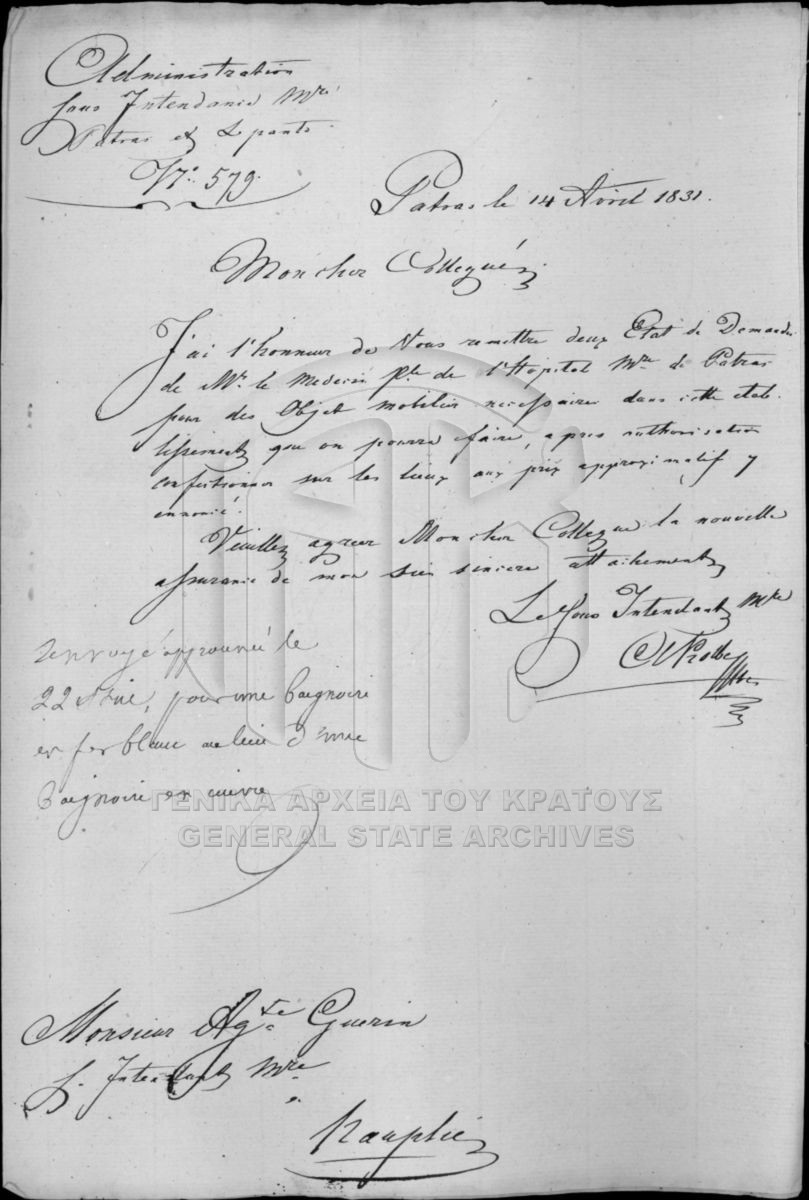 Administration
sous Intendance Mre
Patras et Lepante
N° 579.
Patras le 14 Avril 1831.
Mon cher Collegué
J'ai l'honneur de Vous remettre deux Etat de Demandes
de Mr. le Medecin Pl. de l'Hôpital Mre de Patras
pour des Objet mobilier necessaire dans cette etab-
lissement que on pourra faire, apres authorisation
confectionner sur les lieux aux prix approximatif y
ennoncé.
Veuillez agreer Mon cher Collegue la nouvelle
assurance de mon bien sincere attachement
Le Sous Intendant Mre
Renvoyé approuvé le
22 Avril, pour une baignoire
en fer blanc au lieu d'une
baignoire en cuivre
ΓΕΝΙΚΑ ΑΡΧΕΙΑ ΤΟΥ ΚΡΑΤΟΥΣ
GENERAL STATE ARCHIVES
Monsieur Agte Guerin
S. Intendant Mre
Nauplie